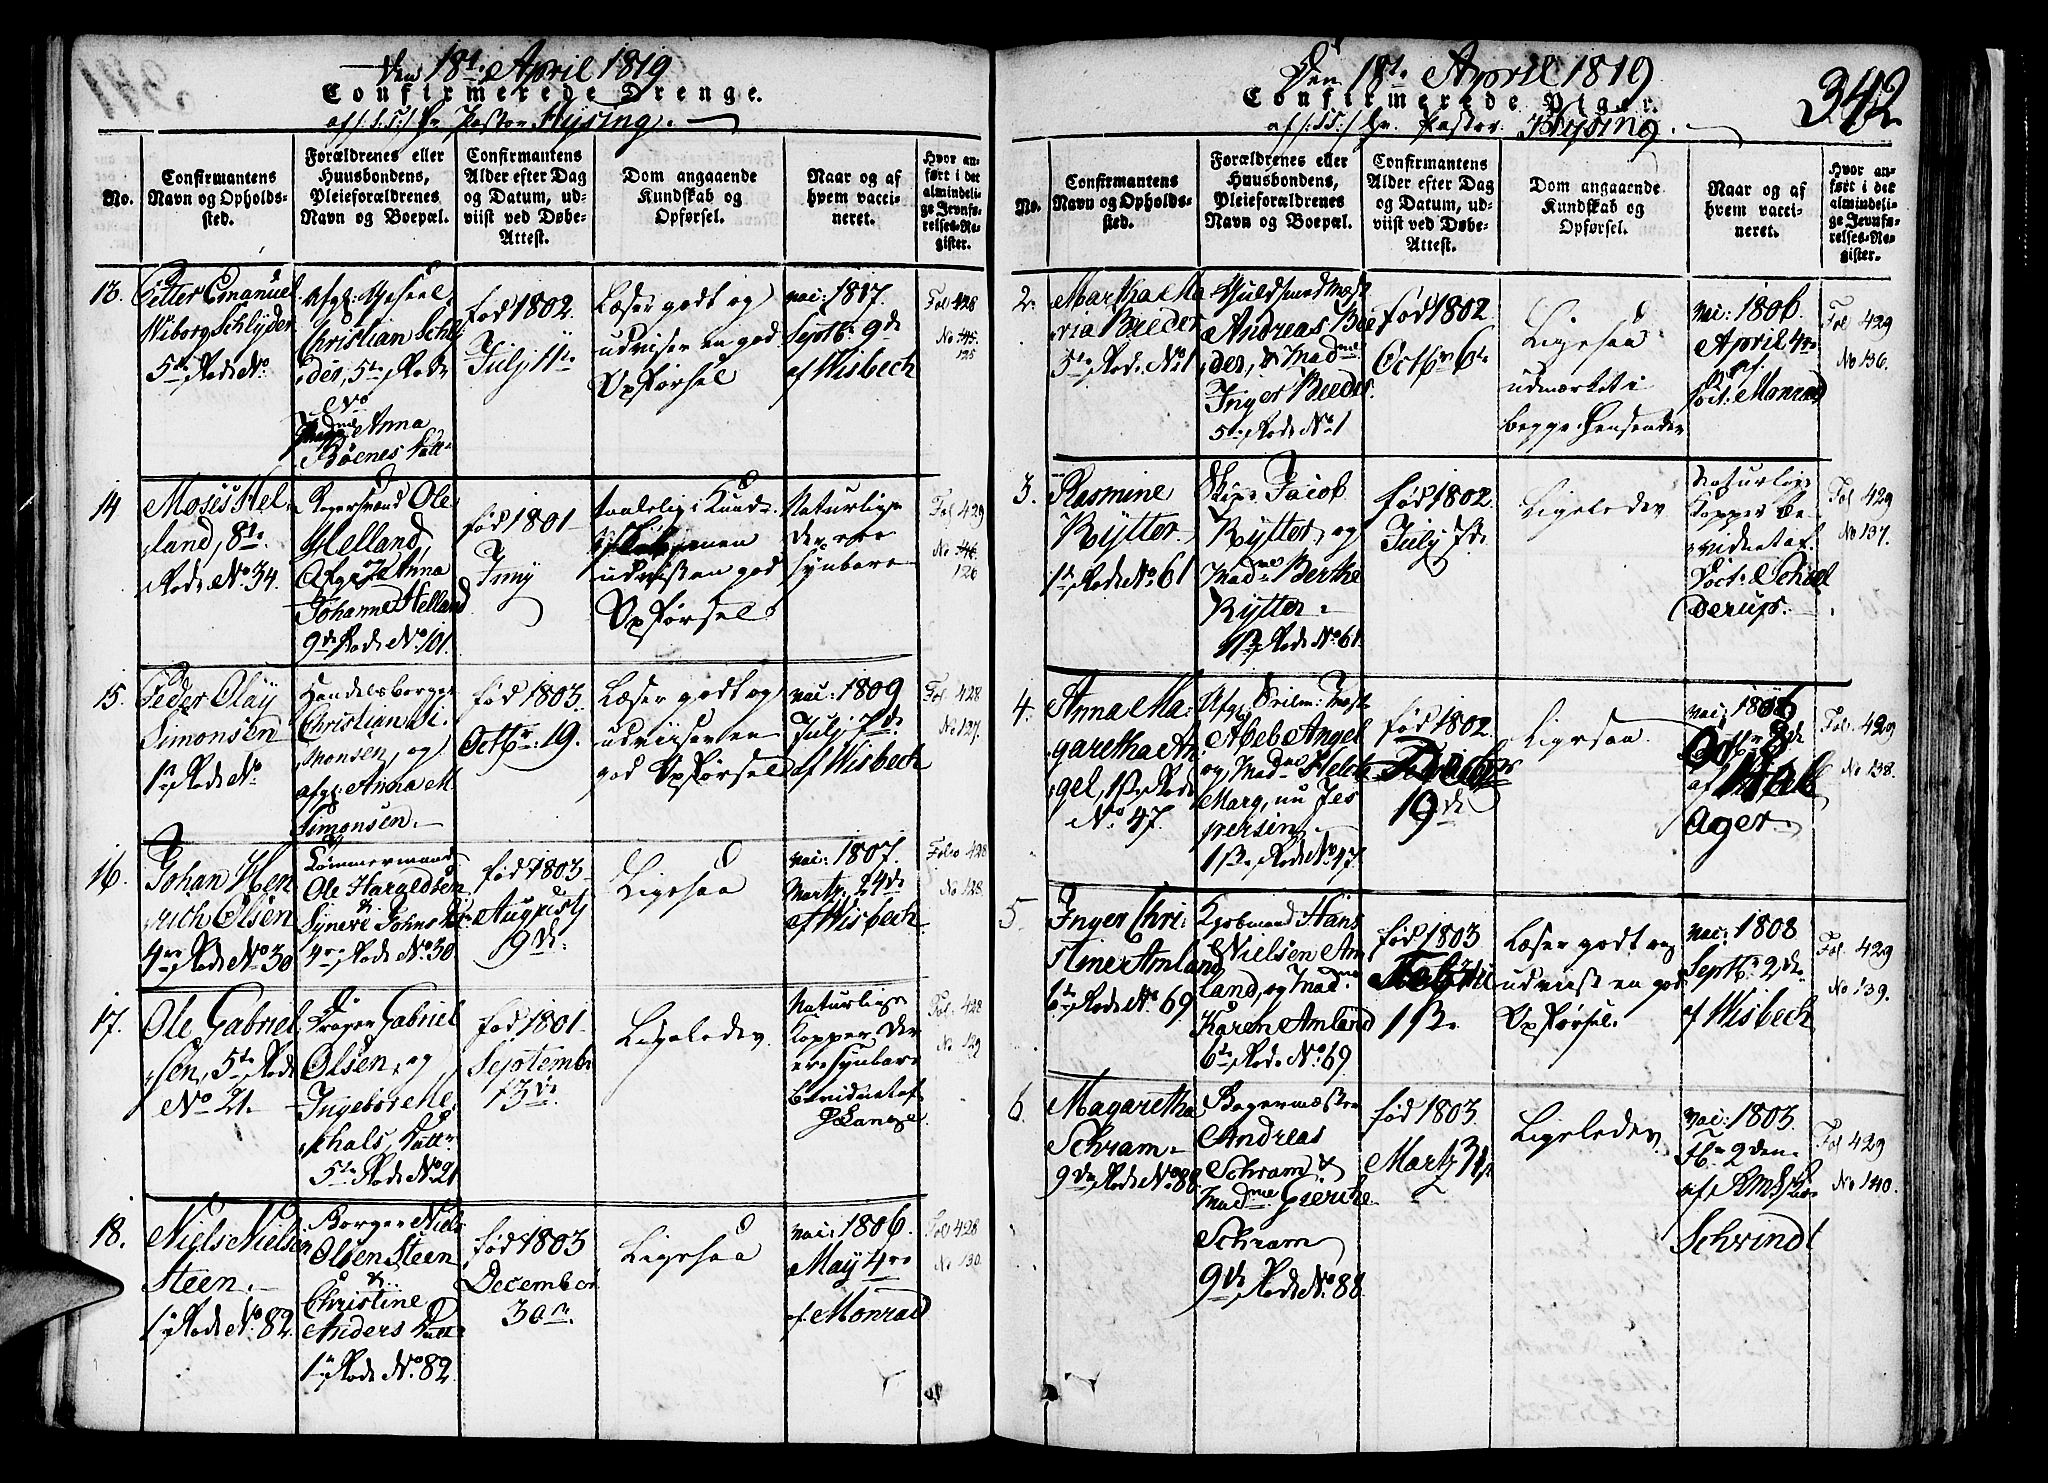 Den 18de April 1819
Confirmerede Drenge.
af /:S:T:/ Hr. Pastor Hysing.
No.
Confirmantens Navn og Opholdssted.
Forældrenes eller Huusbondens, Pleieforældrenes Navn og Boepæl.
Confirmantens Alder efter Dag og Datum, udviist ved Døbe-Attest.
Dom angaaende Kundskab og Opførsel.
Naar og af hvem vaccineret.
Hvor anført i det almindelige Jevnførelses-Register.
13.
Petter Emanuel
Wiborg Schlyder
5te Rode No
Christian Schly
der, 5te Rode
No
Madme Anna
Bøenes Datt.
fød 1802.
July 11te
Læser godt og
udviser en god
Opførsel
vac: 1817.
Septb: 9de
af Wisbech
Fol 428
No 145.
125
14
Moses Hel
land, 8de
Rode No 34.
Ole
Helland,
Afg: Anna
Johanne Helland
9de Rode No. 101.
fød 1801
Taalelig i Kund-
udviist en god
Opførsel
Naturlige
der ere
synbare
Fol 429
No 146.
126
15.
Peder Olay
Simonsen
1ste Rode No
Handelsborger
Christian Si
monsen, og
afg: Anna M.
Simonsen.
fød 1803.
Octbr: 19.
Læser godt og
udviiser en
god Opførsel
vac: 1809
July 7de
af Wisbech
Fol. 428
No 127.
16.
Johan Hen
rich Olsen
4re Rode No 30
Tømmermand
Ole Haraldsen
&
Syneve Johns Dr.
4re Rode No. 30
fød 1803
Augusty
9de.
Ligesaa
vac: 1807.
Martz 24de
af Wisbech
Folio 428
No 128
17.
Ole Gabriel
sen, 5te Rode
No 21.
Drager Gabriel
Olsen, og
Ingebor Me
chals Datt.
5te Rode No. 21
fød 1801
September
13de.
Ligeledes
Naturlige
Kopper, der
ere synbare
bevidnet af
Lange.
Fol. 428
No 129
18.
Niels Nielsen
Steen.
1ste Rode No. 82
Borger Niels
Olsen Steen
&
Christine
Anders Datt.
1ste Rode No. 82
fød 1803
December
30te.
Ligesaa
vac: 1806.
May 4re
af Monrad
Fol 428
No 130.
342
Den 18de April 1819
Confirmerede Piger.
af /:S:T:/ Hr. Pastor Hysing.
No.
Confirmantens Navn og Opholdssted.
Forældrenes eller Huusbondens, Pleieforældrenes Navn og Boepæl.
Confirmantens Alder efter Dag og Datum, udviist ved Døbe-Attest.
Dom angaaende Kundskab og Opførsel.
Naar og af hvem vaccineret.
Hvor anført i det almindelige Jevnførelses-Register.
2.
Martha Ma
ria Beeder
5te Rode No 1
Guldsmed Mest
Andreas Bee
der, & Madme
Inger Beeder
5te Rode No. 1
fød 1802
Octbr 6te
Ligesaa
udmærket i
begge Henseender
vac: 1806
April 4re
af.
Doct: Monrad
Fol 429
No 136.
3.
Rasmine
Rytter
1ste Rode No. 61
Skip: Jacob
Rytter, og
Madme Berthe
Rytter.
1ste Rode No. 61.
fød 1802.
July 7de
Ligeledes
Naturlige
Kopper be
vidnet af
Doct: Schiel
derups.
Fol 429
No 137.
4.
Anna Ma
garetha An
gel, 1ste Rode
No 47.
Abeb Angel
og Madme
Marg, nu Jes
persen
1ste Rode No 47
fød 1802
19de
Ligesaa
vac: 1806
Octbr 8de
af
ager.
Fol. 429
No 138.
5
Inger Chri
stine Amland
6te Rode No. 69
Kiøbmand Hans
Nielsen Am
land, og Madme
Karen Amland
6te Rode No. 69.
fød 1803
1ste.
Læser godt og
udviist en god
Opførsel.
vac: 1808
Septbr 2den
af Wisbech
Fol. 429
No 139.
6.
Magaretha
Schram.
9de Rode No. 88.
Bagermester
Andreas
Schram &
Madme Gierthe
Schram
9de Rode No. 88.
fød 1803.
Martz 31te
Ligeledes
vac: 1803.
2den
af
Schvindt
Fol 429
No 140.